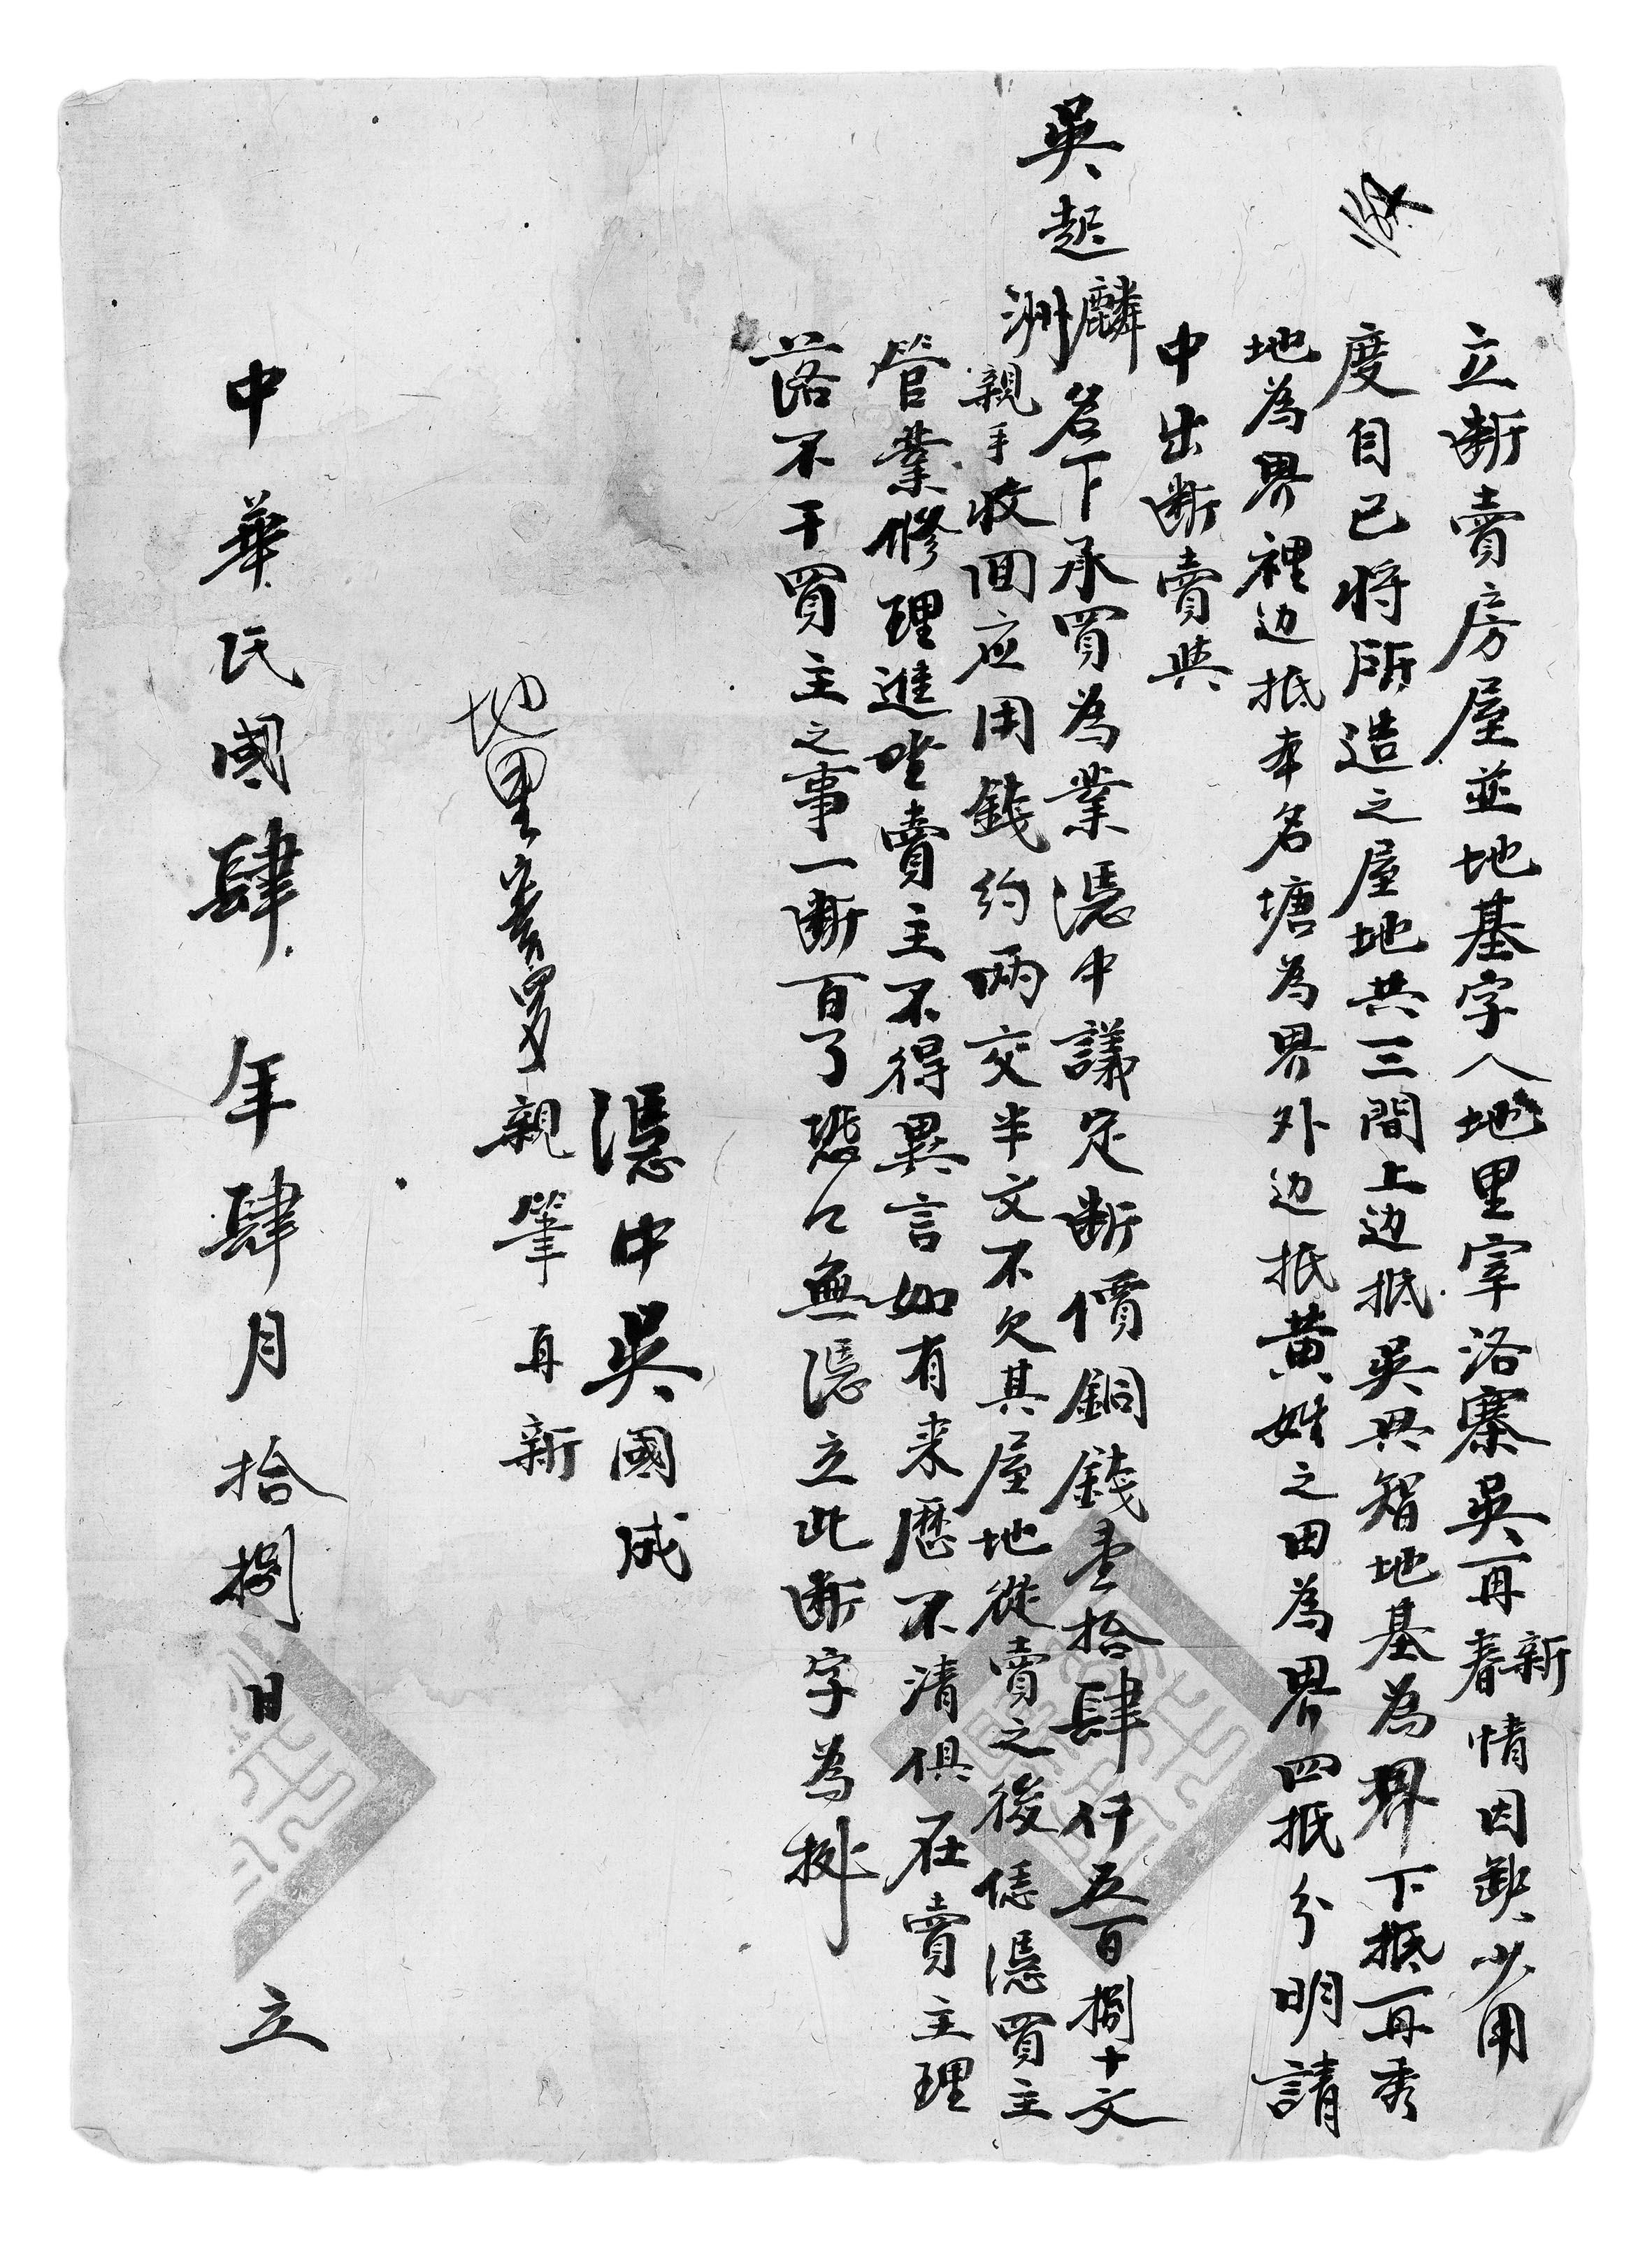 立断賣房屋並地基字人地里宰洛寨吳再新春情因缺少用
度自己将所造之屋地共三間上边抵吳興智地基為界下抵再秀
地為界裡边抵本名塘為界外边抵黄姓之田為界四抵分明請
中出断賣與
吳起麟洲名下承買為業凴中議定断價銅錢壹拾肆仟五百捌十文
親手收回应用錢約兩交半文不欠其屋地從賣之後任凴買主
管業修理進坐賣主不得異言如有来歷不清俱在賣主理
落不干買主之事一断百了恐口無凴立此断字為挀
凴中吳國成
親筆再新
中華民國肆年肆月拾捌日立